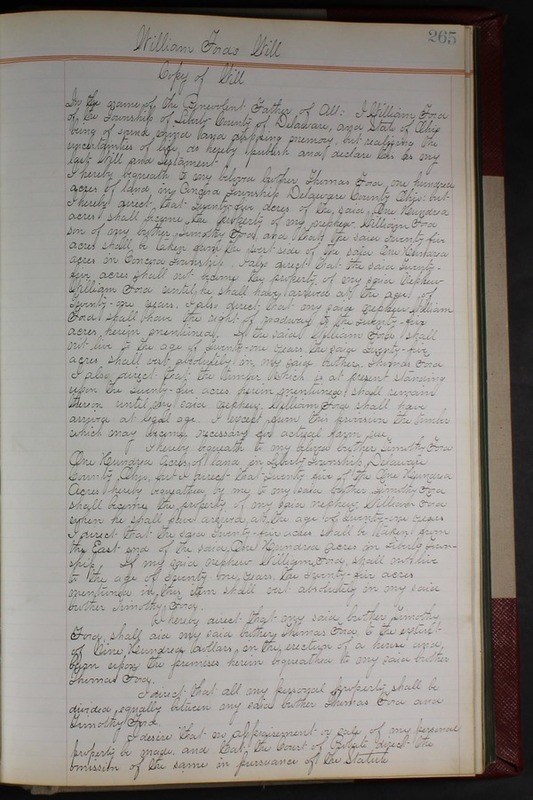 265
William Fords Will
Copy of Will
In the name of the Benevolent Father of All: I William Ford
of the Township of Liberty County of Delaware, and State of Ohio
being of sound mind and disposing memory, but realizing the
uncertainties of life, do hereby publish and declare this as my
last Will and Testament.
I hereby bequeath to my beloved brother Thomas Ford, one hundred
acres of land in Concord Township Delaware County Ohio; but
I hereby direct, that twenty-five acres of the said One Hundred
acres shall become the property of my nephew William Ford
son of my brother Timothy Ford, and that the said twenty-five
acres shall be taken from the west side of the said One Hundred
acres in Concord Township. I also direct that the said twenty-
five acres shall not become the property of my said nephew
William Ford until he shall have arrived at the age of
twenty-one years. I also direct that my said nephew William
Ford shall have the right of roadway to the twenty-five
acres herein mentioned. If the said William Ford shall
not live to the age of twenty-one years, the said twenty-five
acres shall vest absolutely in my said brother, Thomas Ford
I also direct that the timber which is at present standing
upon the twenty-five acres herein mentioned shall remain
thereon until my said nephew William Ford shall have
arrived at legal age. I except from this provision the timber
which may become necessary for actual farm use.
I hereby bequeath to my beloved brother Timothy Ford
One Hundred acres of land in Liberty Township Delaware
County Ohio, but I direct that twenty five of the One Hundred
Acres hereby bequeathed by me to my said brother Timothy Ford
shall become the property of my said nephew William Ford
when he shall have arrived at the age of twenty-one years
I direct that the said twenty-five acres shall be taken from
the East end of the said One Hundred acres in Liberty Town-
ship. If my said nephew William Ford, shall not live
to the age of twenty one years, the twenty-five acres
mentioned in this item shall vest absolutely in my said
brother Timothy Ford.
I hereby direct that my said brother Timothy
Ford, shall aid my said brother Thomas Ford, to the extent
of Five Hundred dollars, in the erection of a house and
barn upon the premises herein bequeathed to my said brother
Thomas Ford.
I direct that all my personal property shall be
divided equally between my said brother Thomas Ford and
Timothy Ford.
I desire that no appraisement or sale of my personal
property be made and that the Court of Probate direct the
omission of the same in pursuance of the Statute